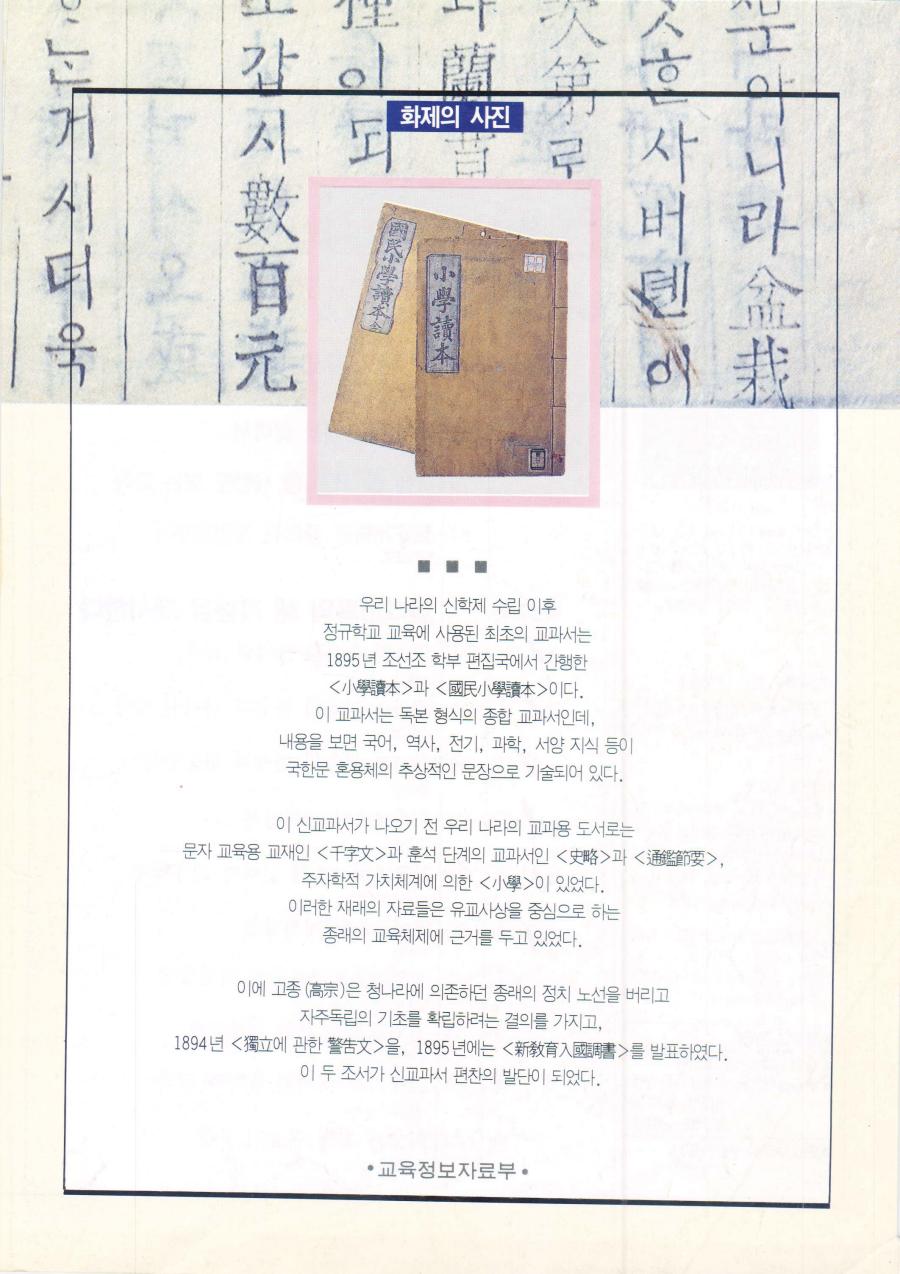 아니라盆栽
흔사버텐이
次第로
蘭昔
種이되
갑시數百元
는거시더욱
화제의 사진
國民小學讀本 全
小學讀本
■ ■ ■
우리 나라의 신학제 수립 이후
정규학교 교육에 사용된 최초의 교과서는
1895년 조선조 학부 편집국에서 간행한
<小學讀本>과 <國民小學讀本>이다.
이 교과서는 독본 형식의 종합 교과서인데,
내용을 보면 국어, 역사, 전기, 과학, 서양 지식 등이
국한문 혼용체의 추상적인 문장으로 기술되어 있다.
이 신교과서가 나오기 전 우리 나라의 교과용 도서로는
문자 교육용 교재인 <千字文>과 훈석 단계의 교과서인 <史略>과 <通鑑節要>,
주자학적 가치체계에 의한 <小學>이 있었다.
이러한 재래의 자료들은 유교사상을 중심으로 하는
종래의 교육체제에 근거를 두고 있었다.
이에 고종(高宗)은 청나라에 의존하던 종래의 정치 노선을 버리고
자주독립의 기초를 확립하려는 결의를 가지고,
1894년 <獨立에 관한 警告文>을, 1895년에는 <新敎育入國調書>를 발표하였다.
이 두 조서가 신교과서 편찬의 발단이 되었다.
•교육정보자료부•